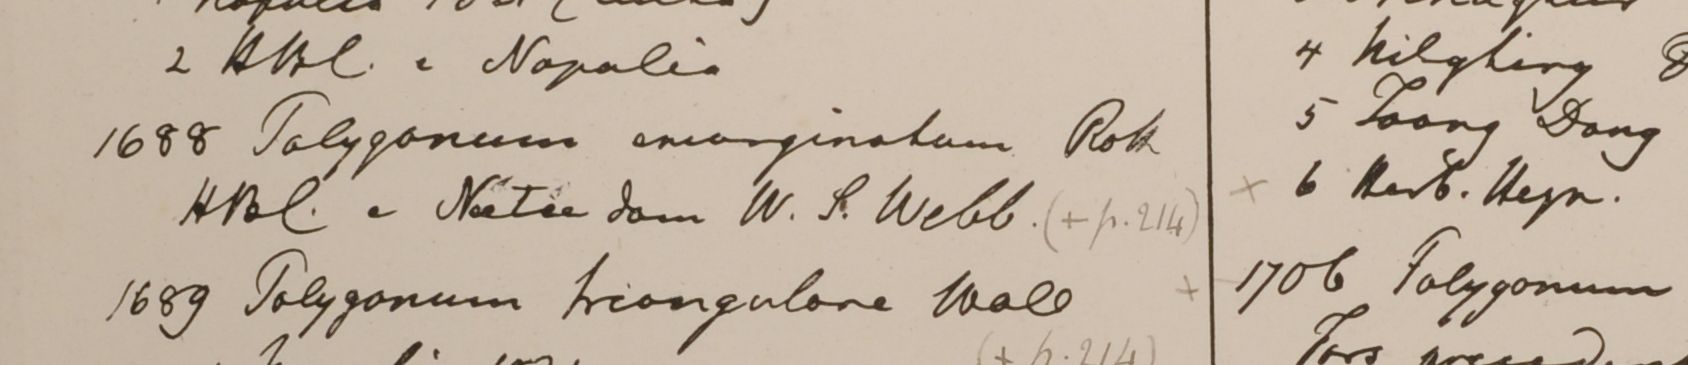 2 HBC. e Napalia
1688 Polygonum emarginatum Roth
HBC. e Neetee dom W. S. Webb. (+ p. 214)
1689 Polygonum triangulare Wall
(+ p. 214)
4 Nilghiry
5 Toong Dong
+ 6 Herb. Heyn.
+ 1706 Polygonum
Fors